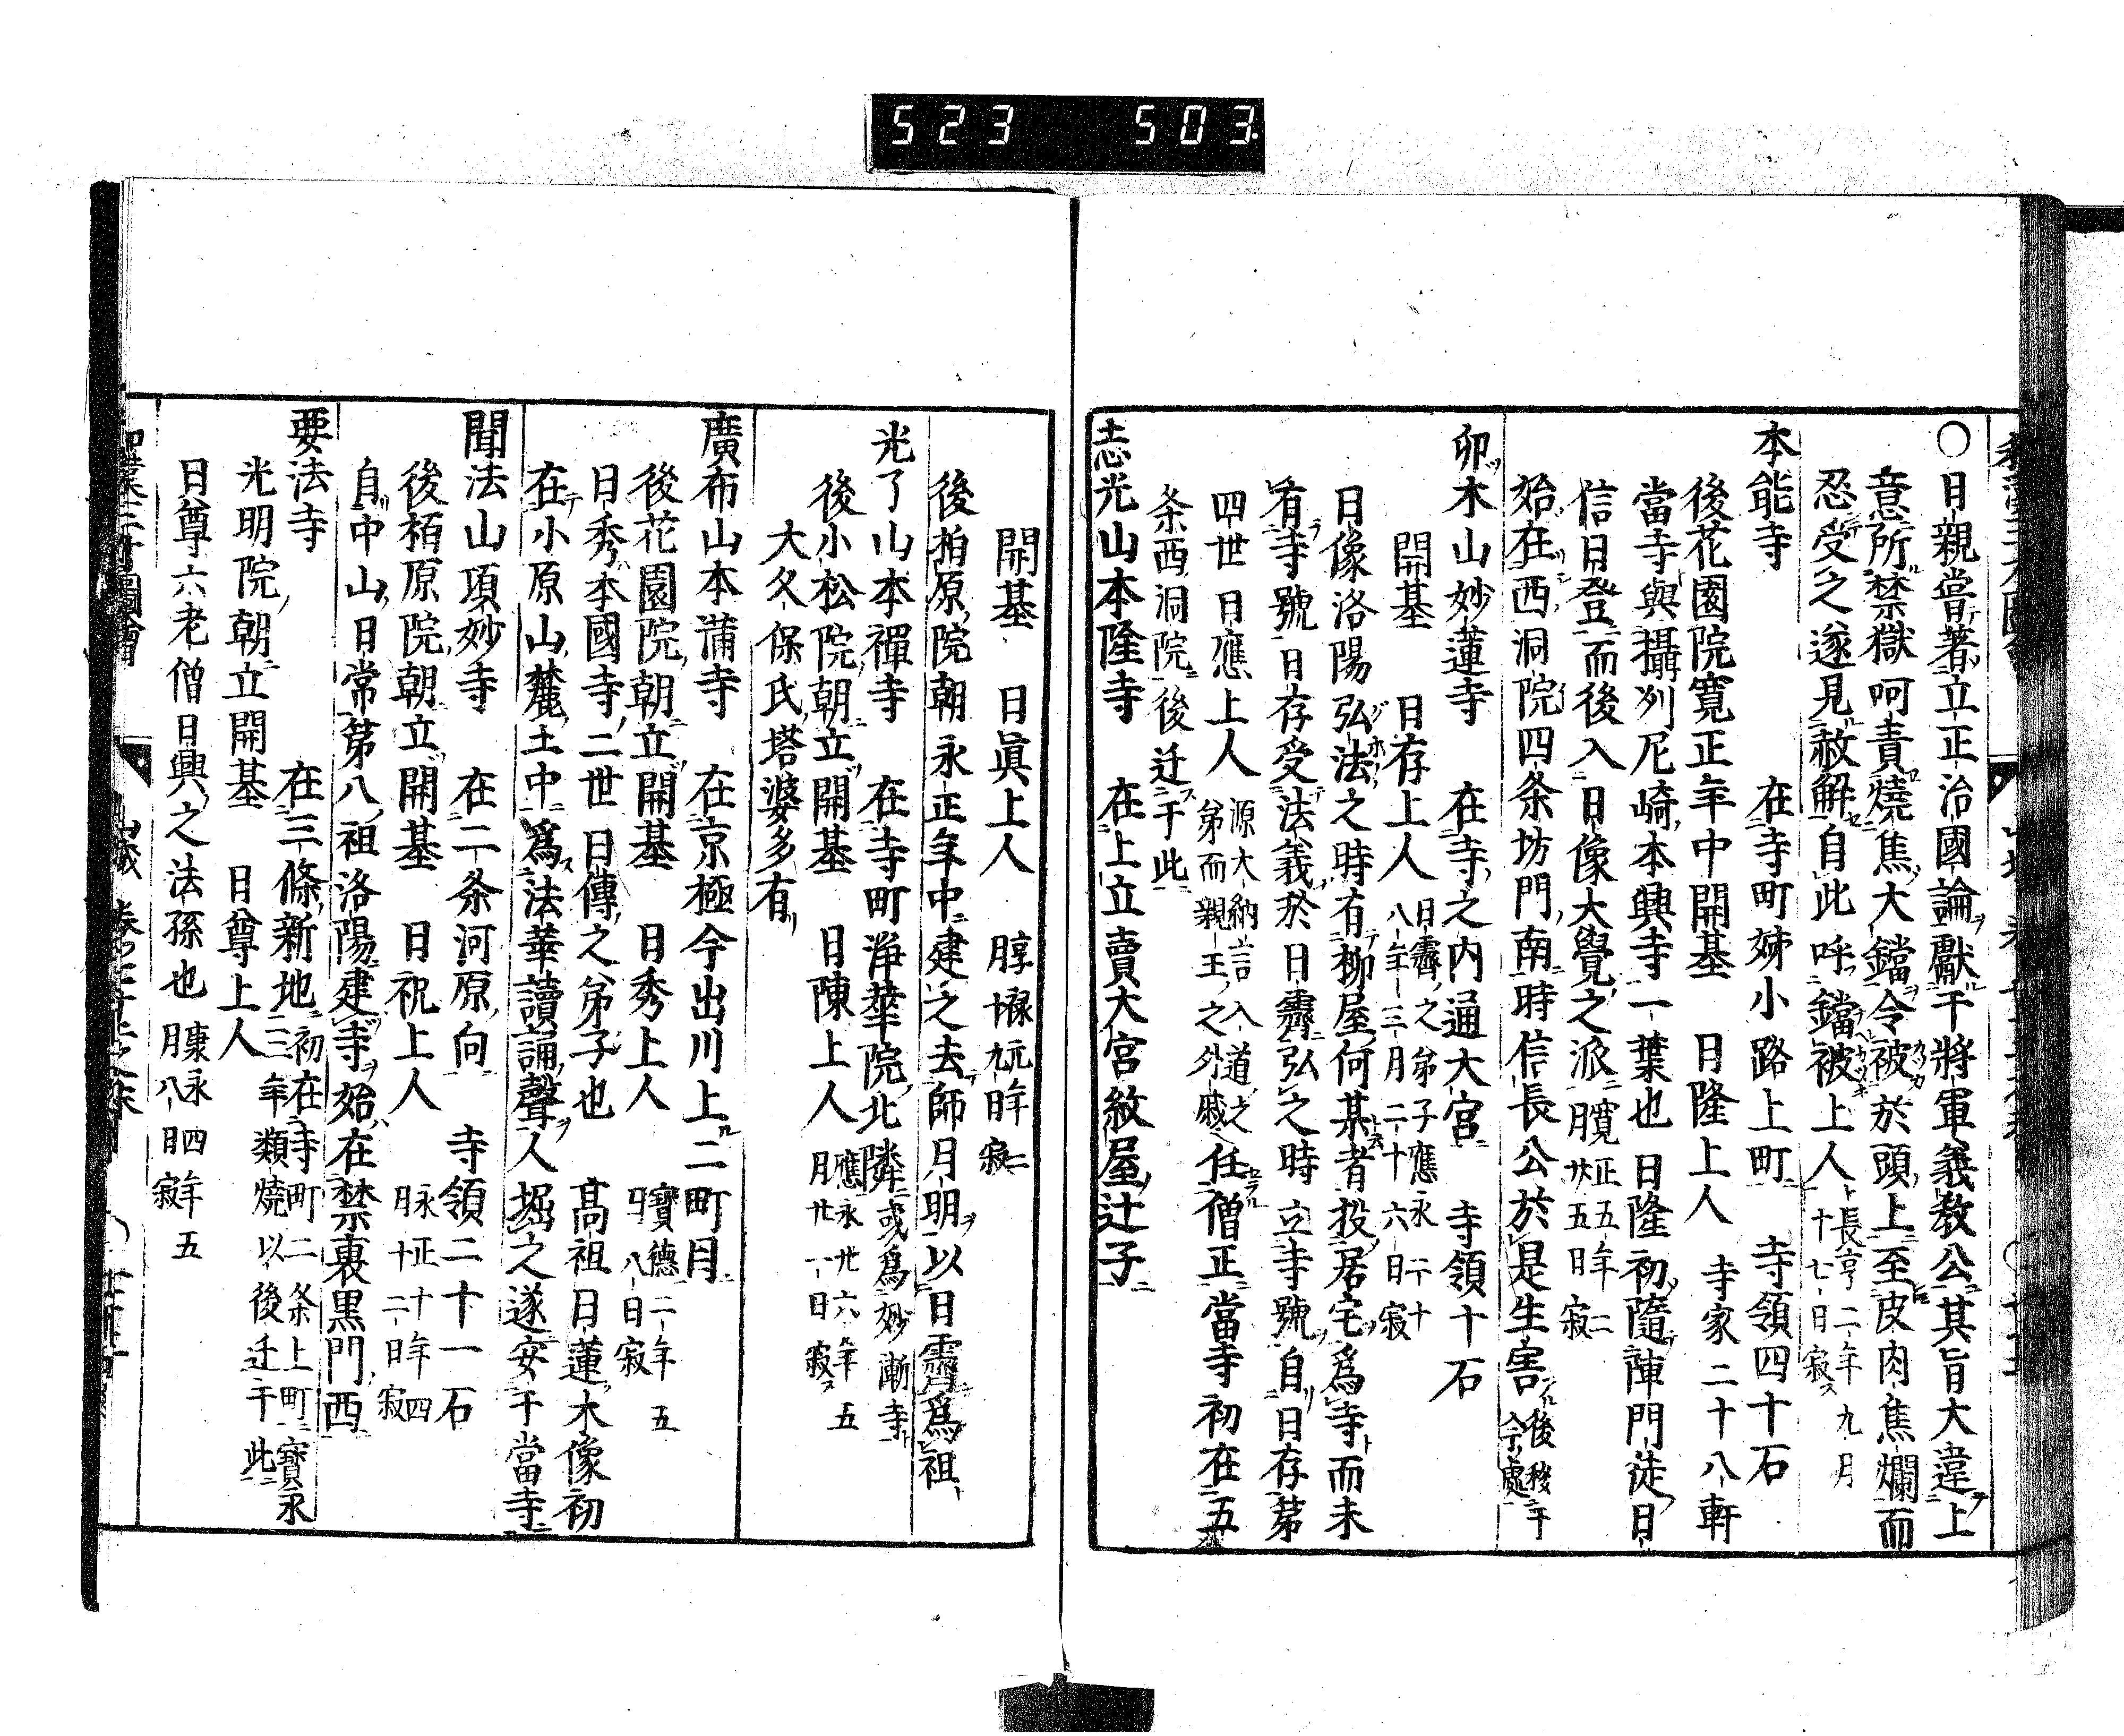 523 503
〇日親嘗著立正治國論獻于將軍義教公其旨大違上
意所禁獄呵責燒焦大鐺令被於頭上至皮肉焦爛而
忍受之遂見赦解自此呼鐺被上人 長亨二年九月
十七日寂
本能寺 在寺町姊小路上町 寺領四十石
後花園院寛正年中開基 日隆上人 寺家二十八軒
當寺與攝州尼崎本興寺一葉也 日隆初隨陣門徒日
信日登而後入日像大覺之派 寛正五年二
月廿五日寂
始在西洞院四条坊門南時信長公於是生害 後移于
今處
卯木山妙蓮寺 在寺之内通大宮 寺領十石
開基 日存上人 日霽之弟子應永二十
八年三月二十六日寂
日像洛陽弘法之時有柳屋何某者投居宅爲寺而未
有寺號日存受法義於日霽弘之時立寺號自日存第
四世日應上人 源大納言入道之
弟而親王之外戚 任僧正當寺初在五
条西洞院後迁于此
志光山本隆寺 在上立賣大宮紋屋辻子
開基 日眞上人 享禄元年二
月十九日寂
後柏原院朝永正年中建之去師日明以日霽爲祖
光了山本禪寺 在寺町淨華院北隣 或爲妙漸寺
後小松院朝立開基 日陳上人 應永廿六年五
月廿一日寂
大久保氏塔婆多有
廣布山本滿寺 在京極今出川上二町目
後花園院朝立開基 日秀上人 寶德二年五
月八日寂
日秀本國寺二世日傳之弟子也 高祖日蓮木像初
在小原山麓土中爲法華讀誦聲人堀之遂安于當寺
聞法山頂妙寺 在二条河原向 寺領二十一石
後柏原院朝立開基 日祝上人 永正十年四
月十二日寂
自中山日常第八祖洛陽建寺始在禁裏黒門西
要法寺 在三條新地 初在寺町二条上町寶永
三年類燒以後迁于此
光明院朝立開基 日尊上人
日尊六老僧日興之法孫也 康永四年五
月八日寂